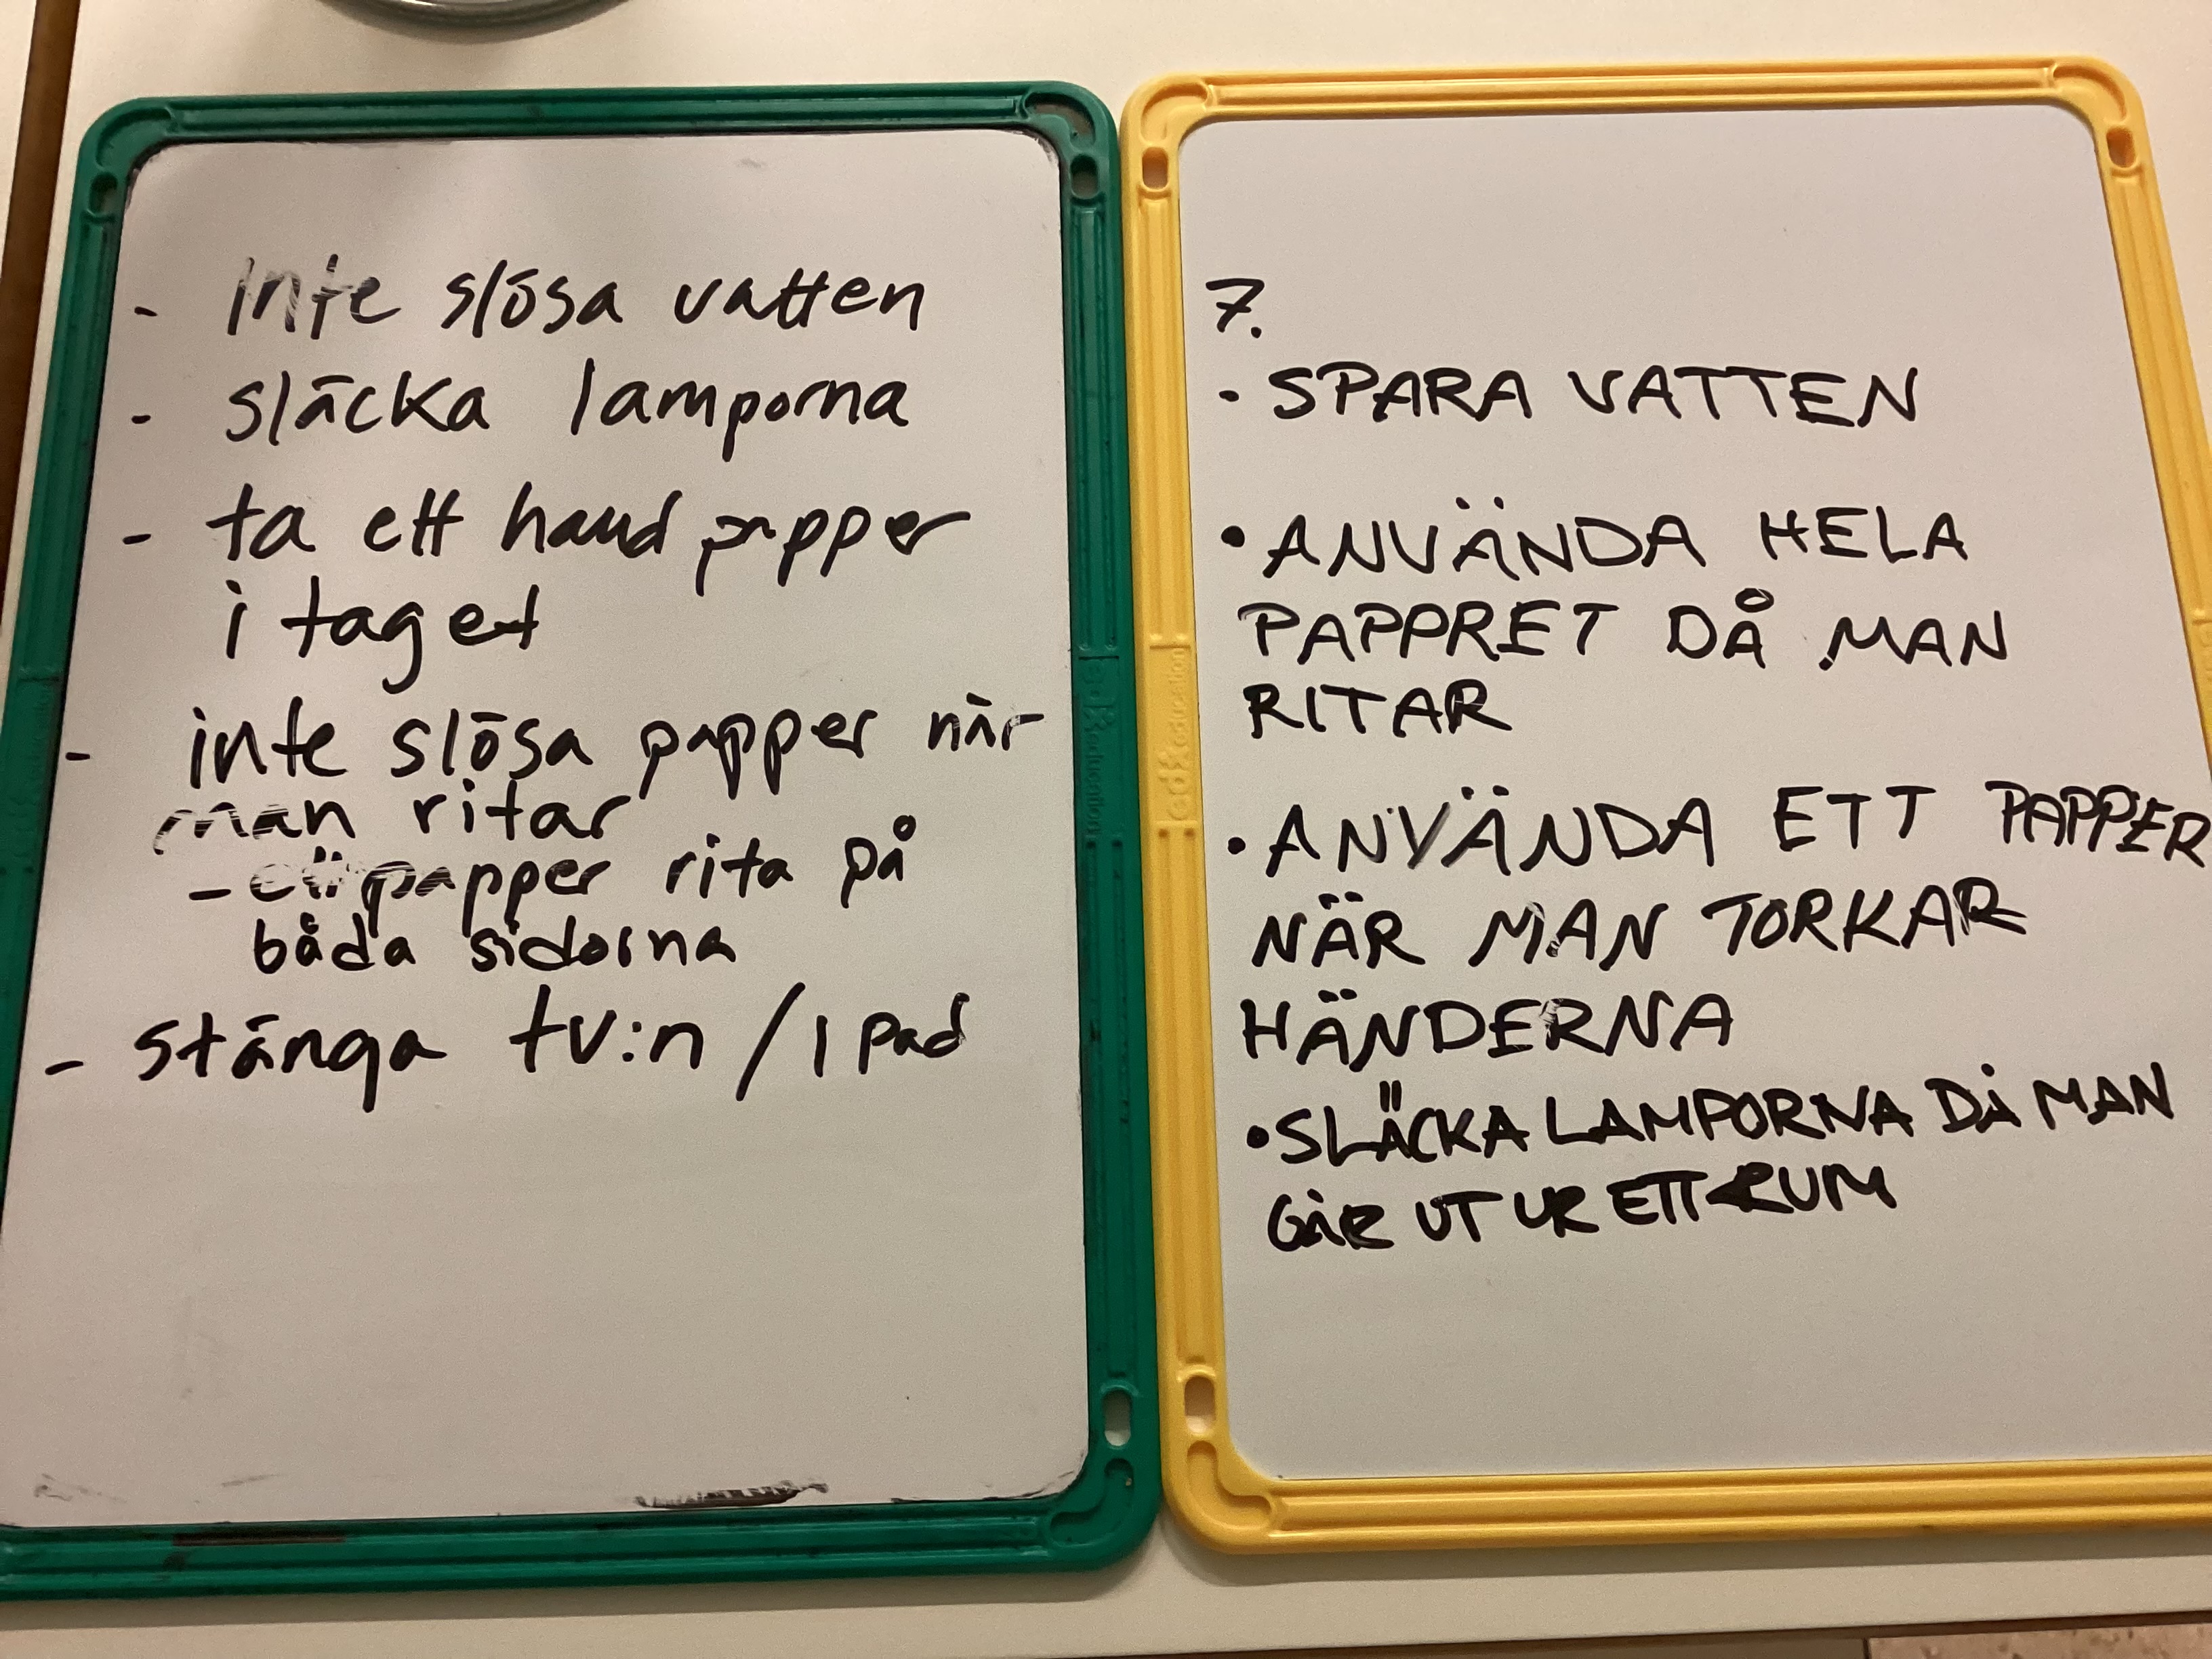 - Inte slösa vatten
- släcka lamporna
- ta ett hand papper
i taget
- inte slösa papper när
man ritar
- ett papper rita på
båda sidorna
- stänga tv:n / i pad
7.
- SPARA VATTEN
• ANVÄNDA HELA
PAPPRET DÅ MAN
RITAR
• ANVÄNDA ETT PAPPER
NÄR MAN TORKAR
HÄNDERNA
• SLÄCKA LAMPORNA DÅ MAN
GÅR UT UR ETT RUM
edx education
edx education